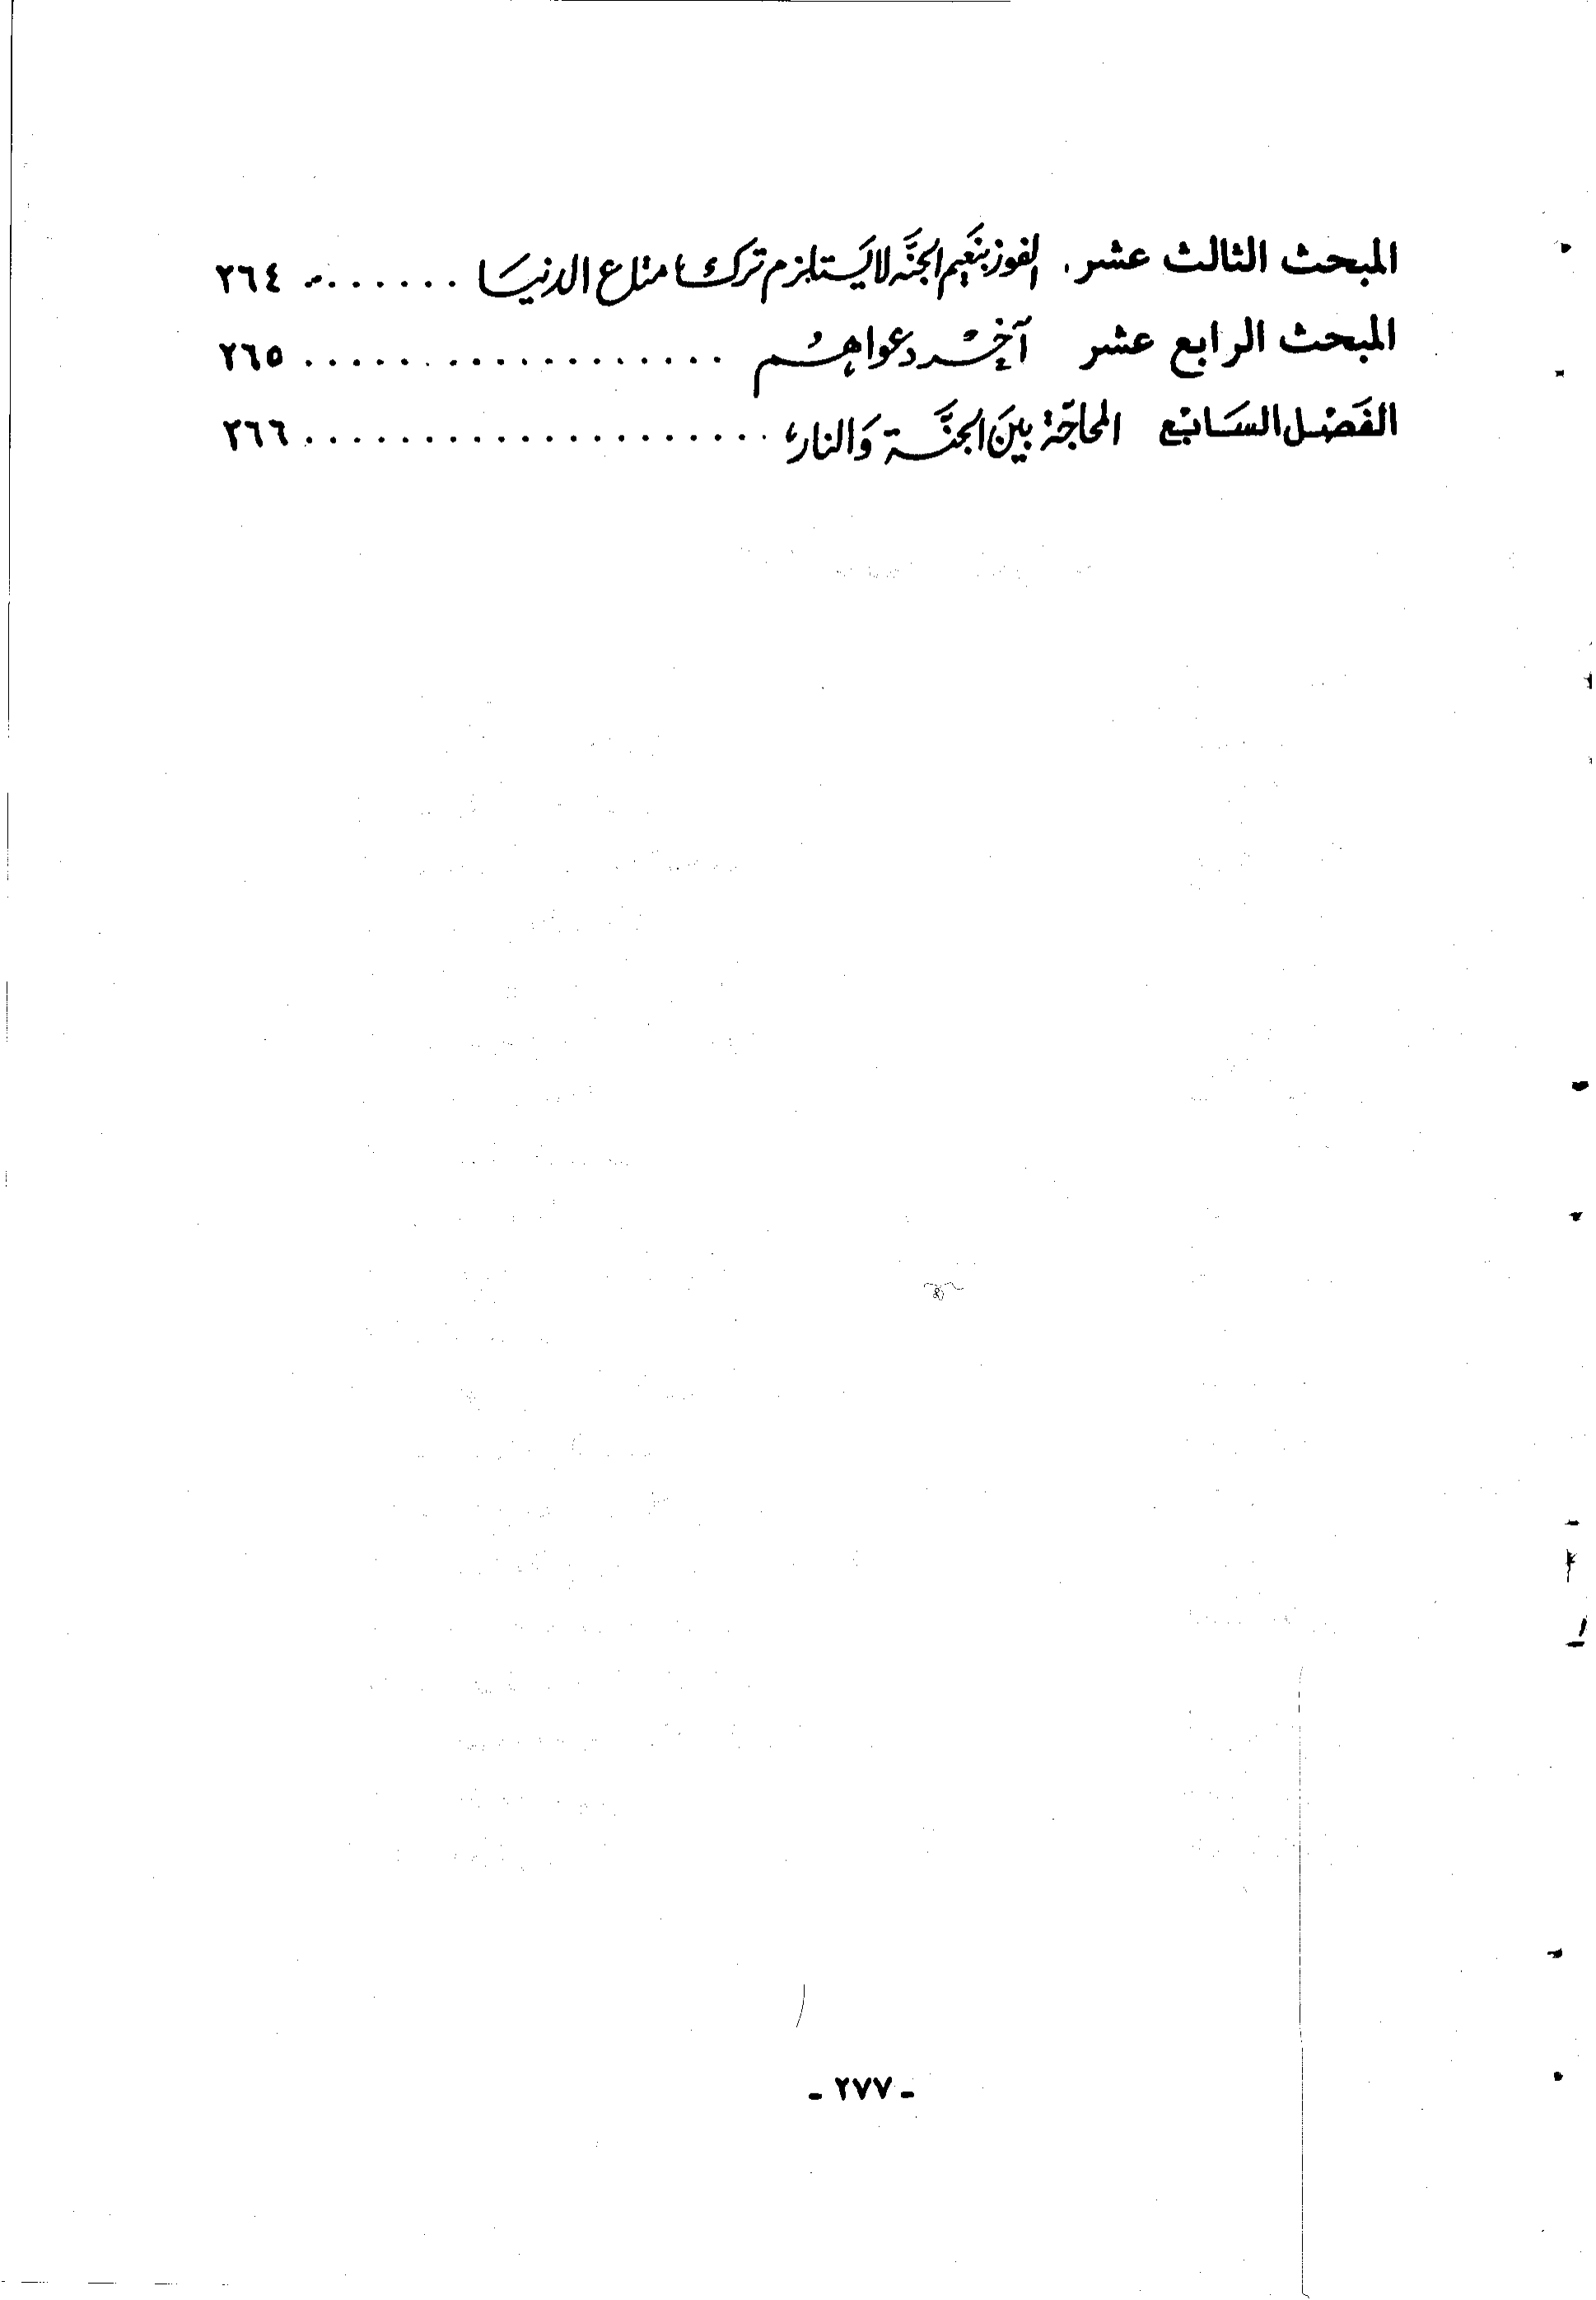 المبحث الثالث عشر. الفوز بنَعَيم الجنَّه لا يَستلزم ترَك متاع الدنيَا ........ ٢٦٤
المبحث الرابع عشر آخِر دعواهُم .................. ٢٦٥
الفَصْل السَابْع المحاجّة بينَ الجنَّة وَالنار .................... ٢٦٦
- ٢٧٧ -